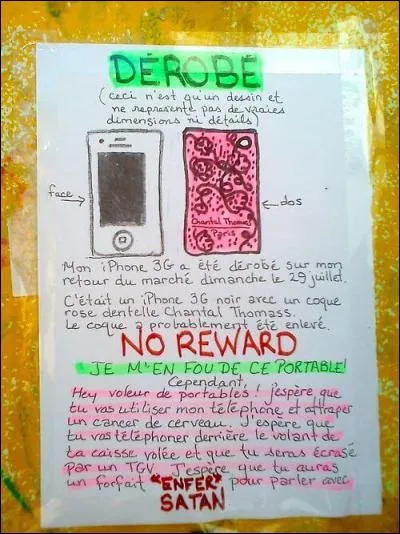 DÉROBÉ
(ceci n'est qu'un dessin et
ne represente pas de vraies
dimensions ni détails)
face
dos
Chantal Thomass
Paris
Mon iPhone 3G a été dérobé sur mon
retour du marché dimanche le 29 juillet.
C'était un iPhone 3G noir avec un coque
rose dentelle Chantal Thomass.
Le coque a probablement été enlevé.
NO REWARD
JE M'EN FOU DE CE PORTABLE!
Cependant,
Hey voleur de portables! j'espère que
tu vas utiliser mon téléphone et attraper
un cancer de cerveau. J'espère que
tu vas téléphoner derrière le volant de
ta caisse volée et que tu seras écrasé
par un TGV. J'espère que tu auras
un forfait "ENFER" pour parler avec
SATAN